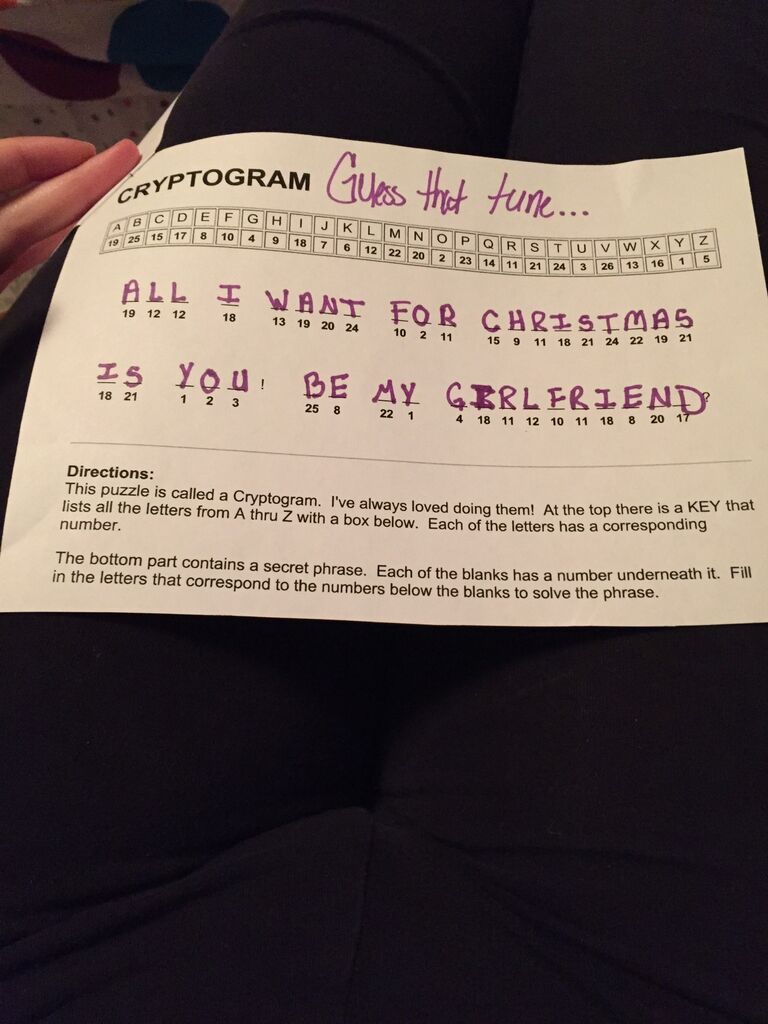 CRYPTOGRAM Guess that tune...
A B C D E F G H I J K L M N O P Q R S T U V W X Y Z
19 25 15 17 8 10 4 9 18 7 6 12 22 20 2 23 14 11 21 24 3 26 13 16 1 5
ALL I WANT FOR CHRISTMAS
19 12 12 18 13 19 20 24 10 2 11 15 9 11 18 21 24 22 19 21
IS YOU! BE MY GIRLFRIEND?
18 21 1 2 3 25 8 22 1 4 18 11 12 10 11 18 8 20 17
Directions:
This puzzle is called a Cryptogram. I've always loved doing them! At the top there is a KEY that
lists all the letters from A thru Z with a box below. Each of the letters has a corresponding
number.
The bottom part contains a secret phrase. Each of the blanks has a number underneath it. Fill
in the letters that correspond to the numbers below the blanks to solve the phrase.